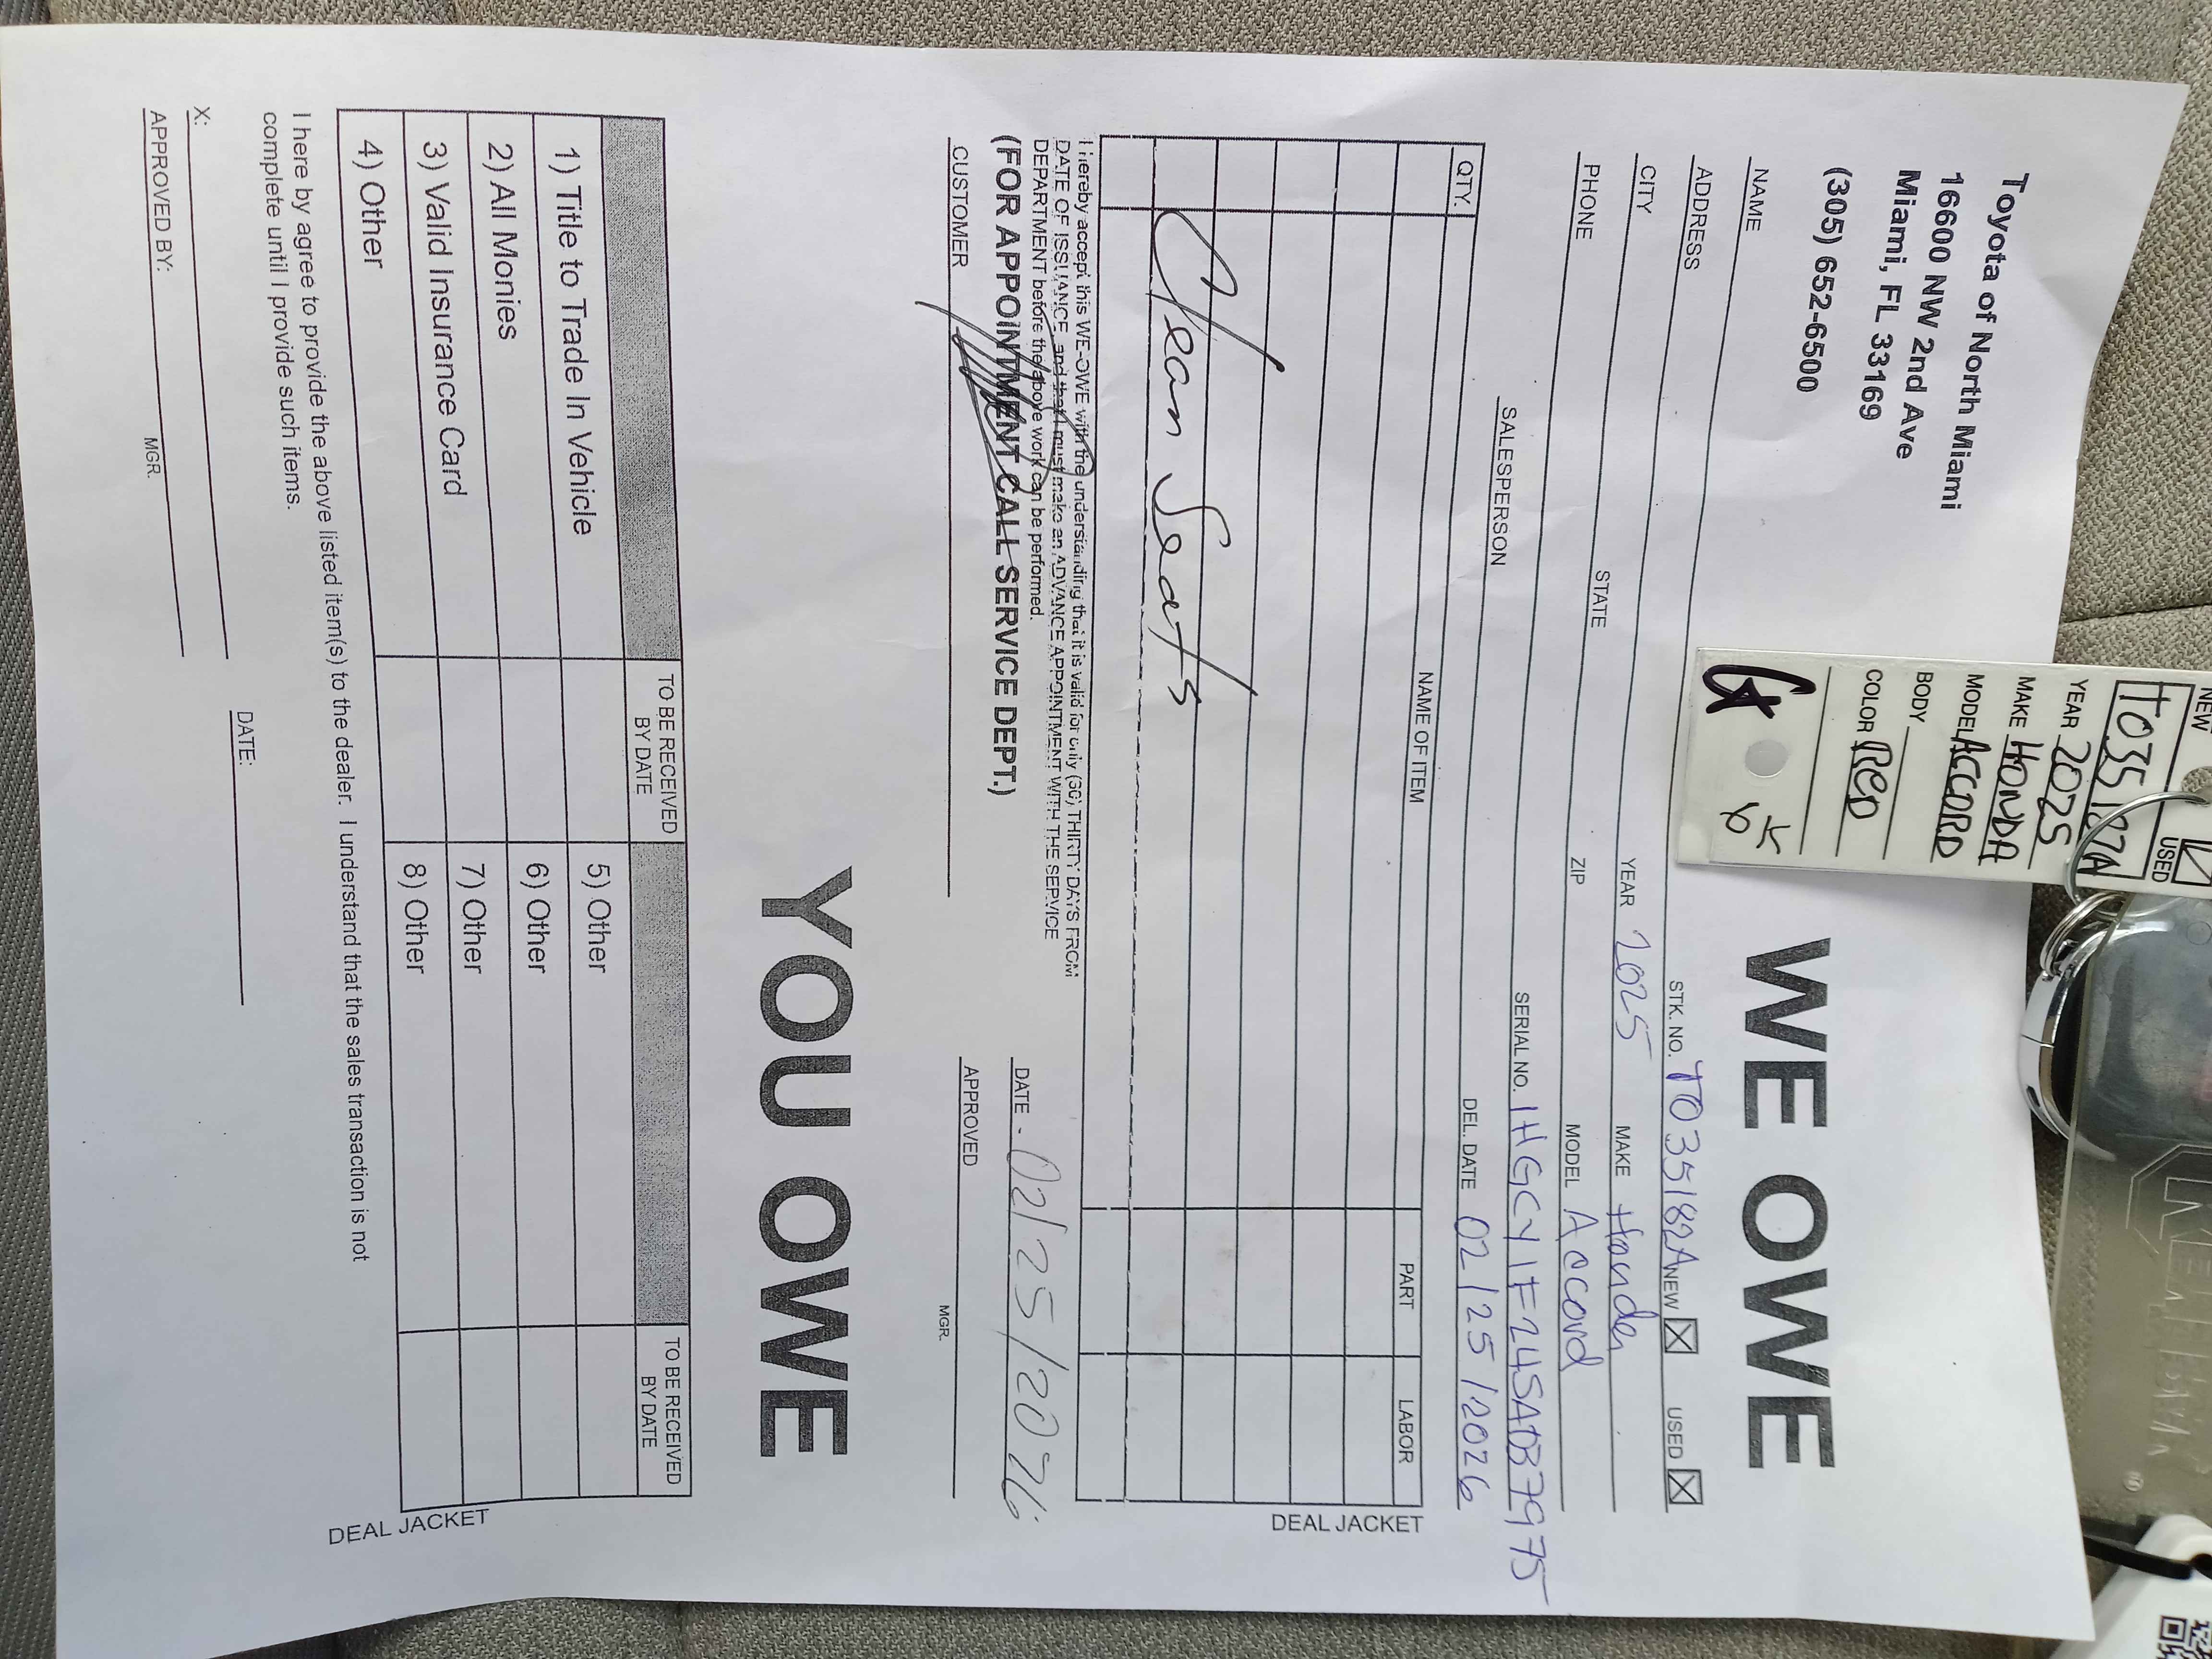 Toyota of North Miami
16600 NW 2nd Ave
Miami, FL 33169
(305) 652-6500
WE OWE
NEW USED
T035182A
YEAR 2025
MAKE HONDA
MODEL ACCORD
BODY
COLOR RED
NAME STK. NO. T035182A NEW USED
ADDRESS YEAR 2025 MAKE Honda
CITY STATE ZIP MODEL Accord
PHONE SERIAL NO. 1HGCY1F24SA037975
SALESPERSON DEL. DATE 02/25/2026
QTY. NAME OF ITEM PART LABOR
Clean Seats
DEAL JACKET
I hereby accept this WE-OWE with the understanding that it is valid for only (30) THIRTY DAYS FROM
DATE OF ISSUANCE and that I must make an ADVANCE APPOINTMENT WITH THE SERVICE
DEPARTMENT before the above work can be performed.
(FOR APPOINTMENT CALL SERVICE DEPT.) DATE 02/25/2026
CUSTOMER APPROVED MGR.
YOU OWE
TO BE RECEIVED BY DATE TO BE RECEIVED BY DATE
1) Title to Trade In Vehicle 5) Other
2) All Monies 6) Other
3) Valid Insurance Card 7) Other
4) Other 8) Other
DEAL JACKET
I here by agree to provide the above listed item(s) to the dealer. I understand that the sales transaction is not
complete until I provide such items.
X: DATE:
APPROVED BY: MGR.